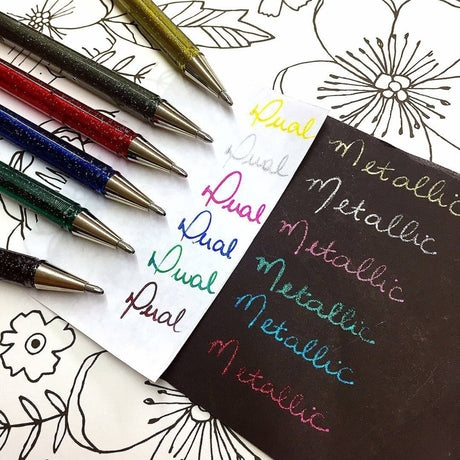 Dual Metallic
Dual Metallic
Dual Metallic
Dual Metallic
Dual Metallic
Dual Metallic